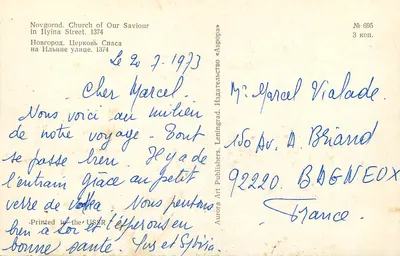 Novgorod. Church of Our Saviour
in Ilyina Street. 1374
Новгород. Церковь Спаса
на Ильине улице. 1374
№ 695
3 коп.
Le 20 7. 1973
Cher Marcel.
Nous voici au milieu
de notre voyage. Tout
se passe bien. Il y a de
l'entrain grâce au petit
verre de vodka. Nous pensons
bien à toi et t'espérons en
bonne santé.
Printed in the USSR
Aurora Art Publishers. Leningrad. Издательство «Аврора»
Mr Marcel Vialade.
150 Av. A. Briand
92220. BAGNEUX
France.